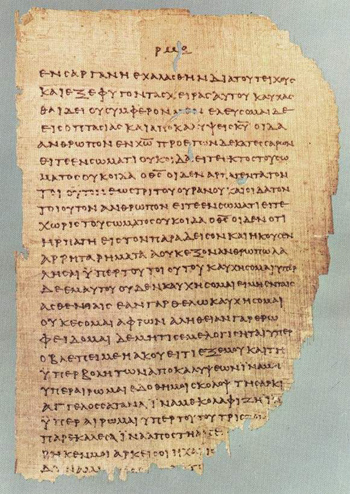 ΕΝ ΣΑΡΓΑΝΗ ΕΧΑΛΑΣΘΗΝ ΔΙΑ ΤΟΥ ΤΕΙΧΟΥΣ
ΚΑΙ ΕΞΕΦΥΓΟΝ ΤΑΣ ΧΕΙΡΑΣ ΑΥΤΟΥ ΚΑΥΧΑΣ
ΘΑΙ ΔΕΙ ΟΥ ΣΥΜΦΕΡΟΝ ΜΕΝ ΕΛΕΥΣΟΜΑΙ ΔΕ
ΕΙΣ ΟΠΤΑΣΙΑΣ ΚΑΙ ΑΠΟΚΑΛΥΨΕΙΣ Κ̅Υ̅ ΟΙΔΑ
ΑΝΘΡΩΠΟΝ ΕΝ Χ̅Ω̅ ΠΡΟ ΕΤΩΝ ΔΕΚΑΤΕΣΣΑΡΩΝ
ΕΙΤΕ ΕΝ ΣΩΜΑΤΙ ΟΥΚ ΟΙΔΑ ΕΙΤΕ ΕΚΤΟΣ ΤΟΥ ΣΩ
ΜΑΤΟΣ ΟΥΚ ΟΙΔΑ Ο Θ̅Σ̅ ΟΙΔΕΝ ΑΡΠΑΓΕΝΤΑ ΤΟΝ
ΤΟΙΟΥΤΟΝ ΕΩΣ ΤΡΙΤΟΥ ΟΥΡΑΝΟΥ ΚΑΙ ΟΙΔΑ ΤΟΝ
ΤΟΙΟΥΤΟΝ ΑΝΘΡΩΠΟΝ ΕΙΤΕ ΕΝ ΣΩΜΑΤΙ ΕΙΤΕ
ΧΩΡΙΣ ΤΟΥ ΣΩΜΑΤΟΣ ΟΥΚ ΟΙΔΑ Ο Θ̅Σ̅ ΟΙΔΕΝ ΟΤΙ
ΗΡΠΑΓΗ ΕΙΣ ΤΟΝ ΠΑΡΑΔΕΙΣΟΝ ΚΑΙ ΗΚΟΥΣΕΝ
ΑΡΡΗΤΑ ΡΗΜΑΤΑ Α ΟΥΚ ΕΞΟΝ ΑΝΘΡΩΠΩ ΛΑ
ΛΗΣΑΙ ΫΠΕΡ ΤΟΥ ΤΟΙΟΥΤΟΥ ΚΑΥΧΗΣΟΜΑΙ ΥΠΕΡ
ΔΕ ΕΜΑΥΤΟΥ ΟΥΔΕΝ ΚΑΥΧΗΣΟΜΑΙ ΕΙ ΜΗ ΕΝ ΤΑΙΣ
ΑΣΘΕΝΕΙΑΙΣ ΕΑΝ ΓΑΡ ΘΕΛΩ ΚΑΥΧΗΣΟΜΑΙ
ΟΥΚ ΕΣΟΜΑΙ ΑΦΡΩΝ ΑΛΗΘΕΙΑΝ ΓΑΡ ΕΡΩ
ΦΕΙΔΟΜΑΙ ΔΕ ΜΗ ΤΙΣ ΕΜΕ ΛΟΓΙΣΗΤΑΙ ΥΠΕΡ
Ο ΒΛΕΠΕΙ ΜΕ Η ΑΚΟΥΕΙ ΤΙ ΕΞ ΕΜΟΥ ΚΑΙ ΤΗ
ΫΠΕΡΒΟΛΗ ΤΩΝ ΑΠΟΚΑΛΥΨΕΩΝ ΪΝΑ ΜΗ
ΥΠΕΡΑΙΡΩΜΑΙ ΕΔΟΘΗ ΜΟΙ ΣΚΟΛΟΨ ΤΗ ΣΑΡΚΙ
ΑΓΓΕΛΟΣ ΣΑΤΑΝΑ ΪΝΑ ΜΕ ΚΟΛΑΦΙΖΗ ΪΝΑ
ΫΠΕΡΑΙΡΩΜΑΙ ΥΠΕΡ ΤΟΥΤΟΥ ΤΡΙΣ
ΠΑΡΕΚΑΛΕΣΑ ΪΝΑ ΑΠΟΣΤΗ
ΚΕΝ ΜΟΙ ΑΡΚΕΙ ΣΟΙ Η ΧΑΡΙΣ